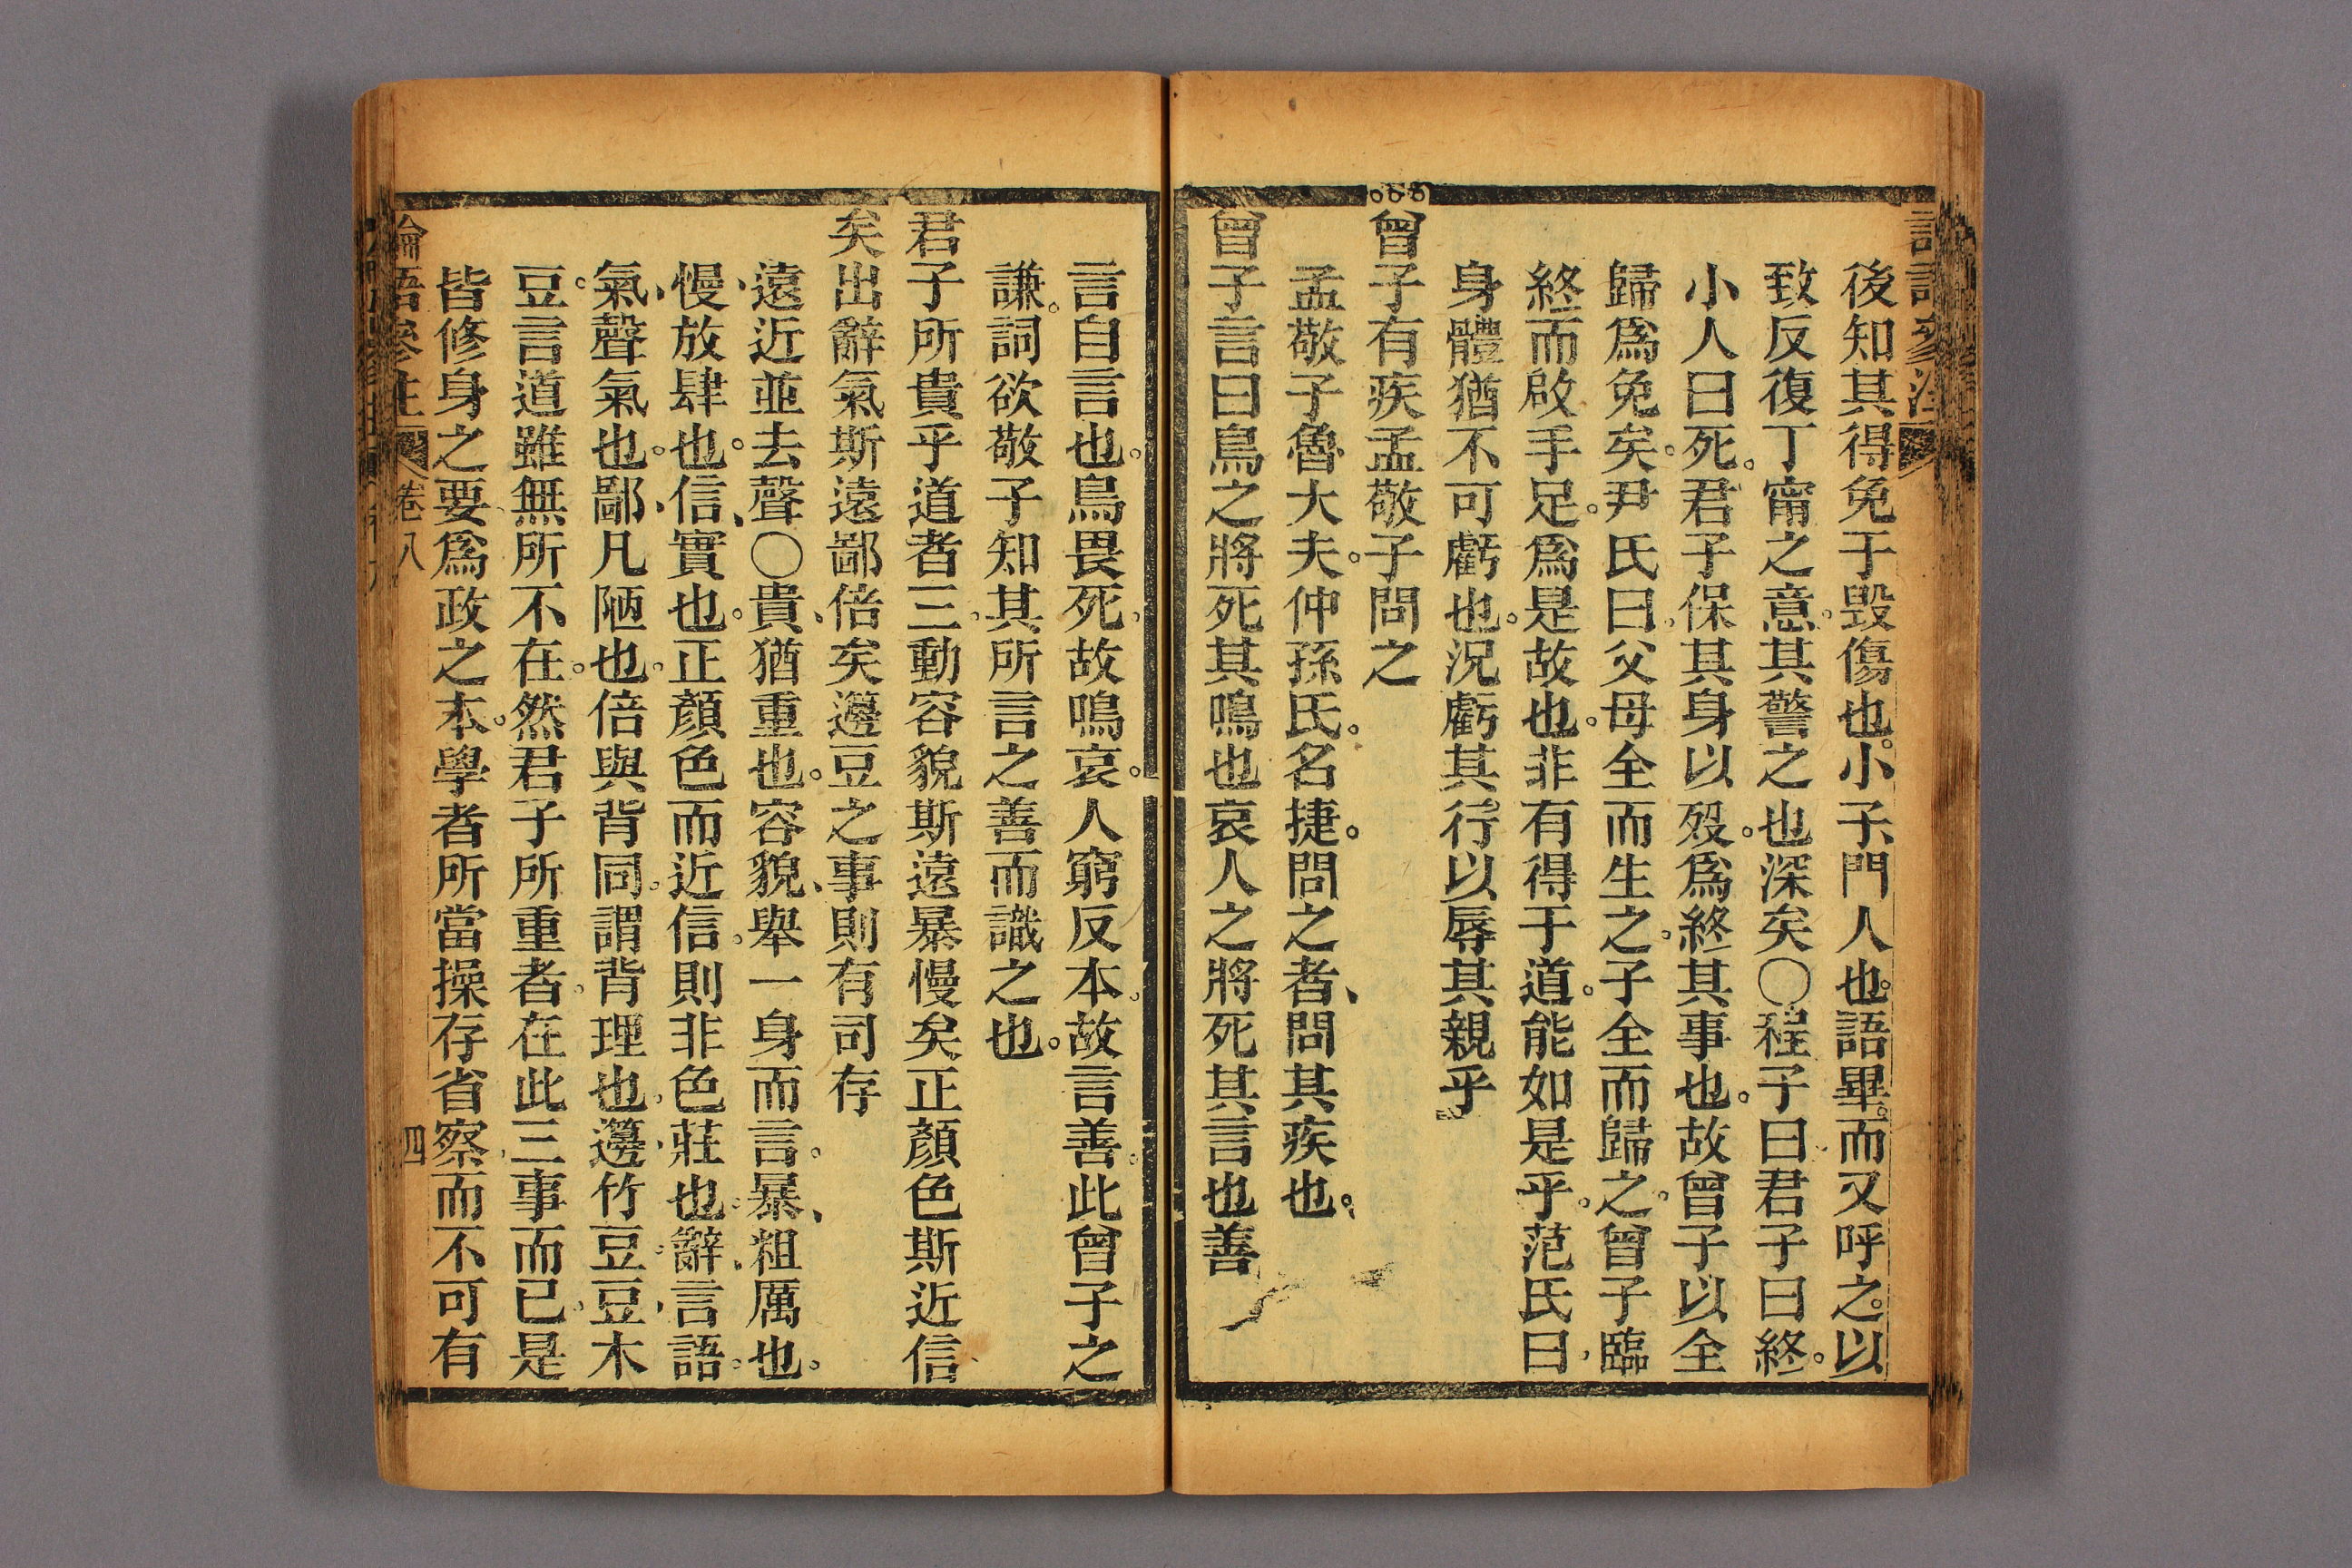 後知其得免于毀傷也。小子、門人也。語畢。而又呼之。以
致反復丁甯之意。其警之也深矣○程子曰君子曰終。
小人曰死。君子保其身以歿。爲終其事也。故曾子以全
歸爲免矣。尹氏曰。父母全而生之。子全而歸之。曾子臨
終而啟手足。爲是故也。非有得于道。能如是乎。范氏曰。
身體猶不可虧也。況虧其行以辱其親乎
曾子有疾孟敬子問之
孟敬子魯大夫。仲孫氏。名捷。問之者、問其疾也。
曾子言曰鳥之將死其鳴也哀人之將死其言也善
言自言也。鳥畏死。故鳴哀。人窮反本。故言善。此曾子之
謙。詞欲敬子知其所言之善而識之也。
君子所貴乎道者三。動容貌斯遠暴慢矣正顏色斯近信
矣出辭氣斯遠鄙倍矣籩豆之事則有司存
遠近並去聲○貴、猶重也。容貌、舉一身而言。暴、粗厲也。
慢、放肆也。信、實也。正顏色而近信。則非色莊也。辭、言語。
氣、聲氣也。鄙、凡陋也。倍與背同。謂背理也。籩、竹豆。豆、木
豆。言道雖無所不在。然君子所重者。在此三事而已。是
皆修身之要。爲政之本。學者所當操存省察。而不可有
論語參注 卷八 四